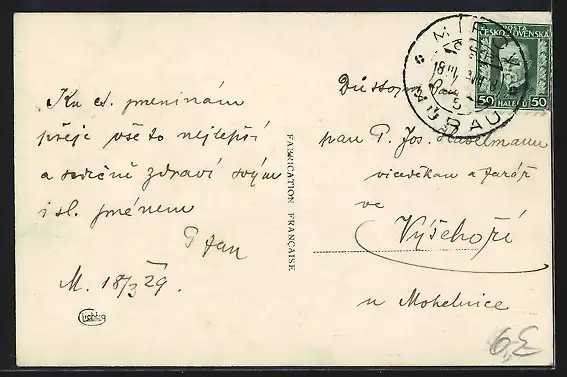 Ku ct. jmeninám
přeje vše to nejlepší
a srdečně zdraví svým
i sl. jménem
P. Jan
M. 18/3 29.
FABRICATION FRANÇAISE
POSTA
ČESKOSLOVENSKÁ
50 HALÉŘŮ 50
MÜRAU
Důstojný Pan
pan P. Jos. Havelmann
viceděkan a farář
ve
Vyšehoří
u Mohelnice